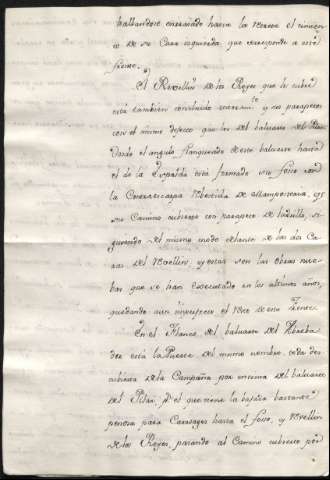 hallandose enrazado hasta la Verece el
de su Cara izquierda, que corresponde a este
frente.
El Revellin de los Reyes que le cubre
está tambien construido, y su parapeto
con el mismo defecto que los del baluarte del
Desde el angulo flanqueado de este baluarte hasta
el de la está formado su foso con
la Contraescarpa Vestida de Mamposteria, y
su Camino cubierto con parapeto de ladrillo, si-
guiendo del mismo modo delante de las dos Ca-
ras del Revellin, y estas son las obras nue-
bas que se han executado en los ultimos años,
quedando aun imperfecto el de este
En el Flanco del baluarte del
dor está la Puerta del mismo nombre, toda des-
cubierta de la Campaña por encima del baluarte
del Pilar, el que tiene la bajada bastante
penosa para Carruages hasta el foso, y Revellin
de los Reyes, pasando al Camino cubierto por